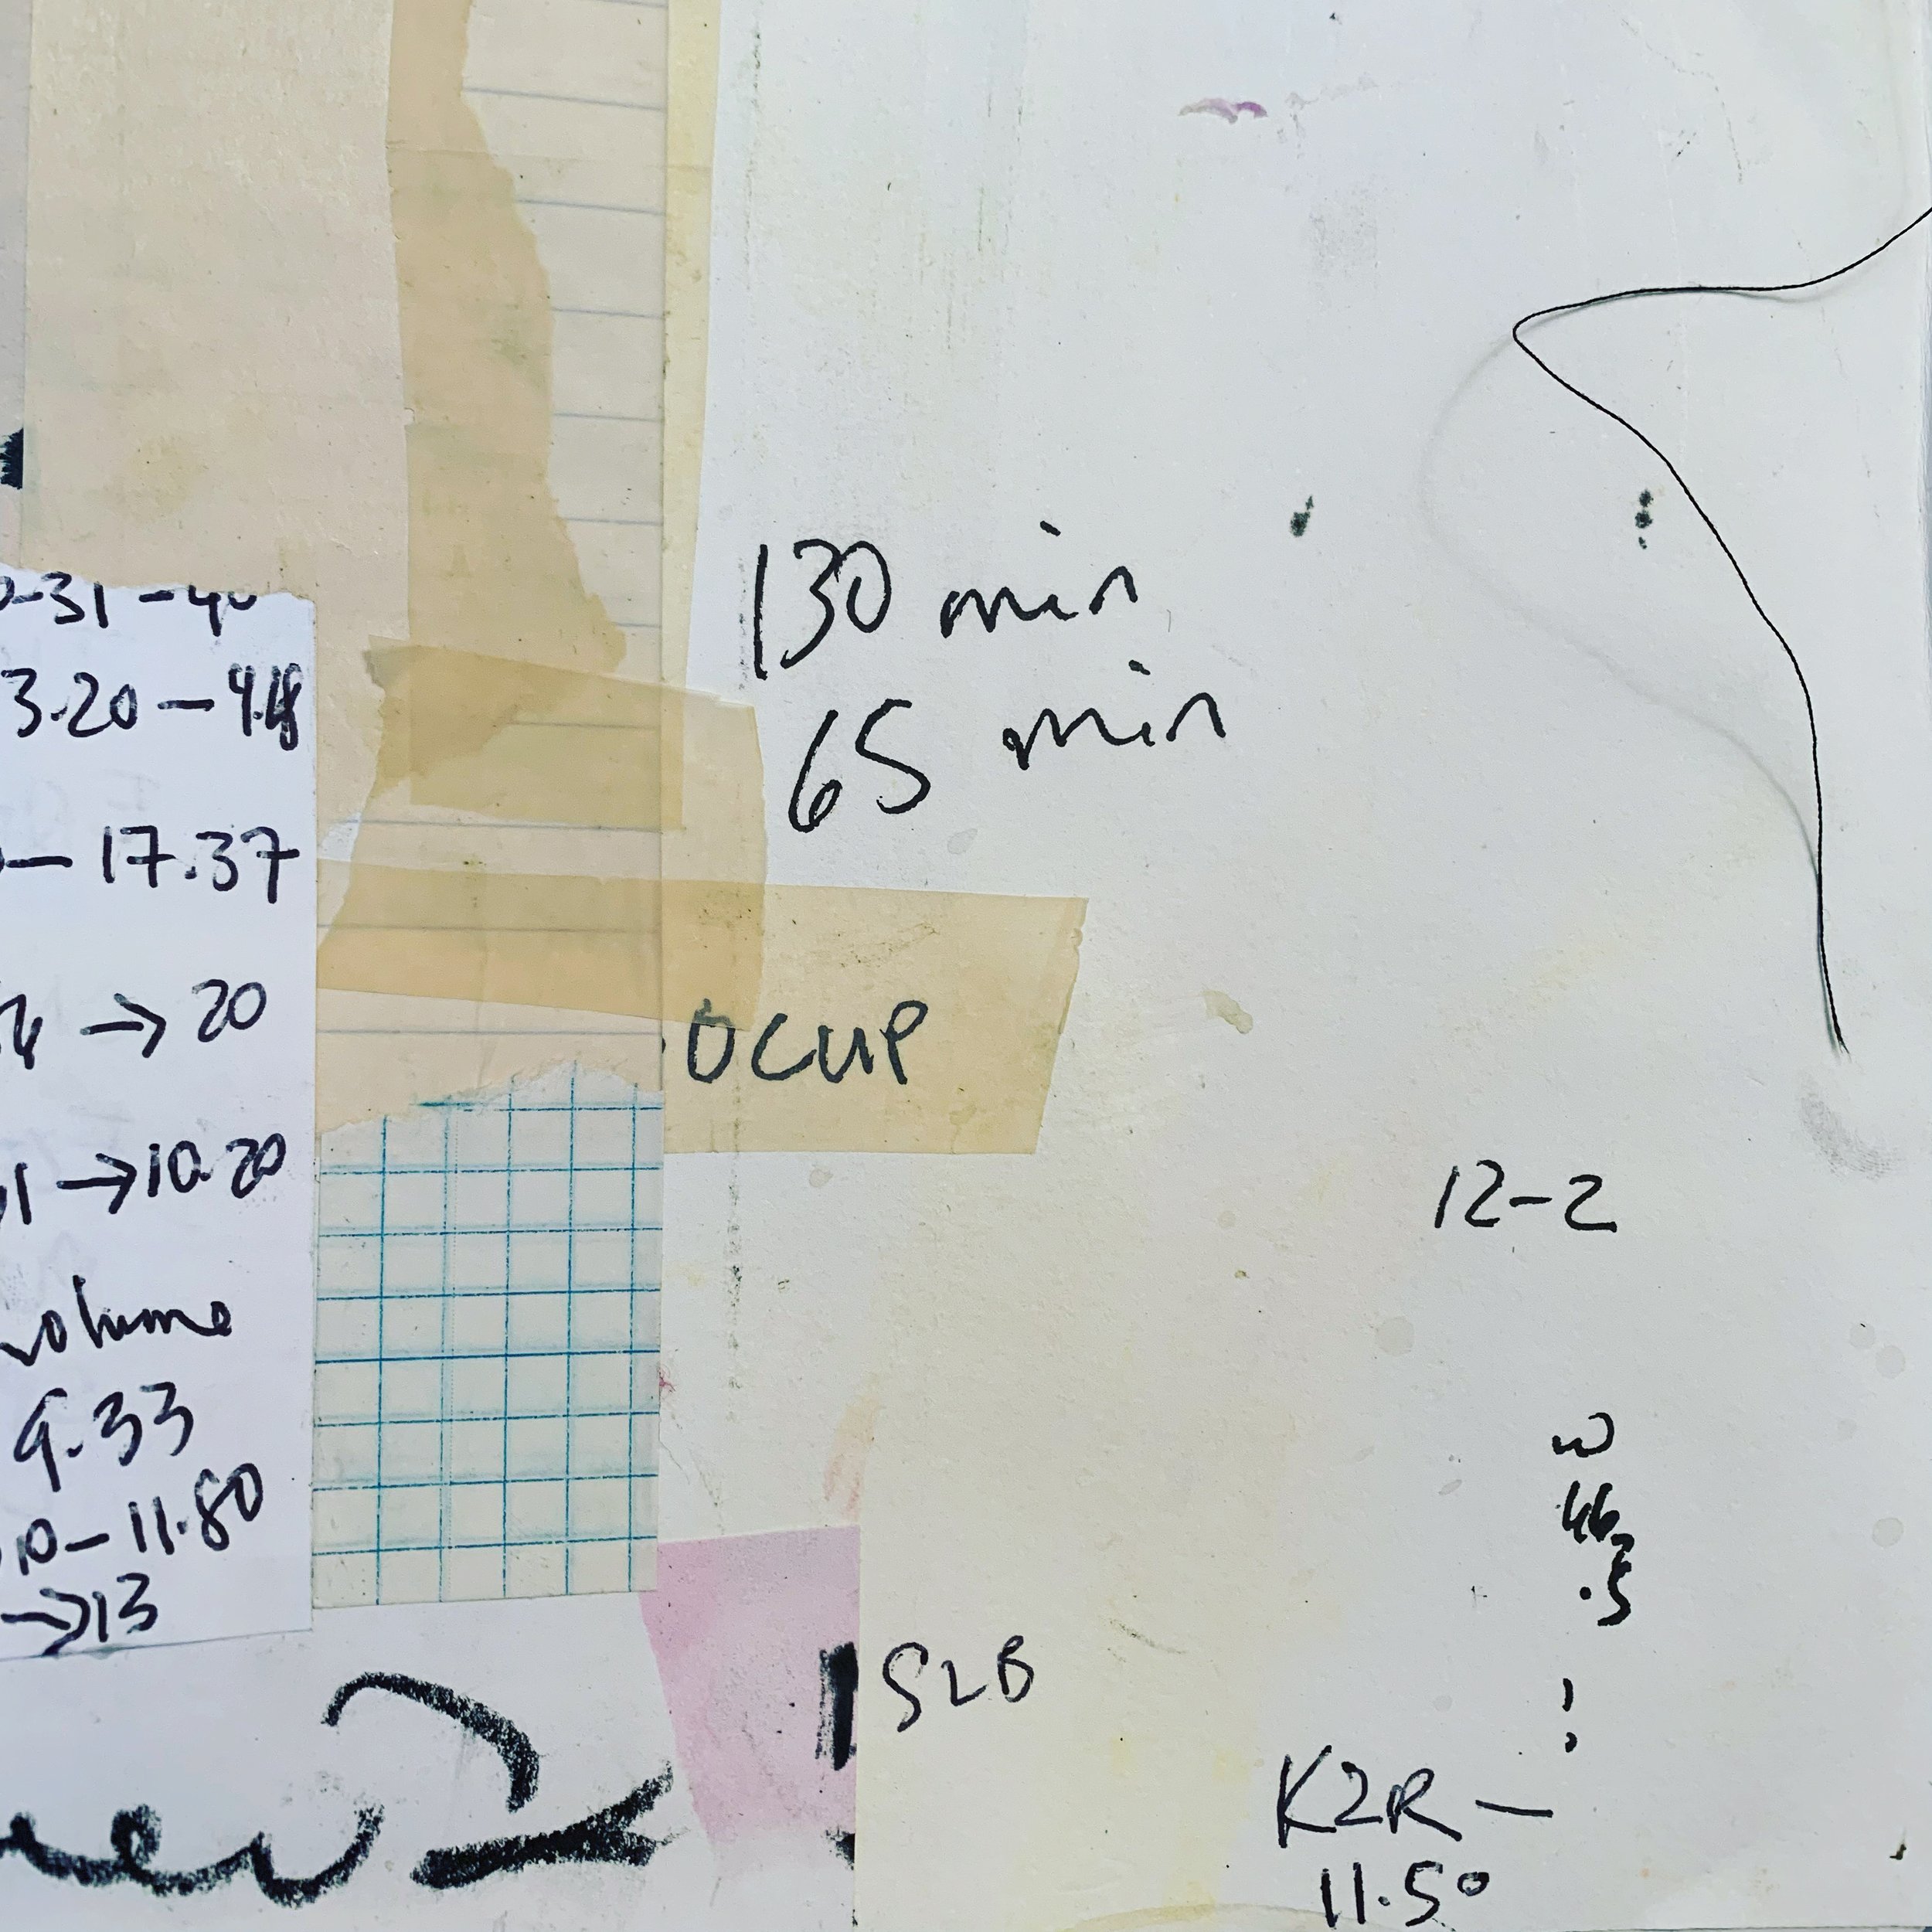 -31-40
3.20-4.18
- 17.37
→ 20
1 → 10.20
volume
9.33
10-11.80
→ 13
130 min
65 min
OCUP
12-2
46
.5
SLB
K2R -
11.50
new